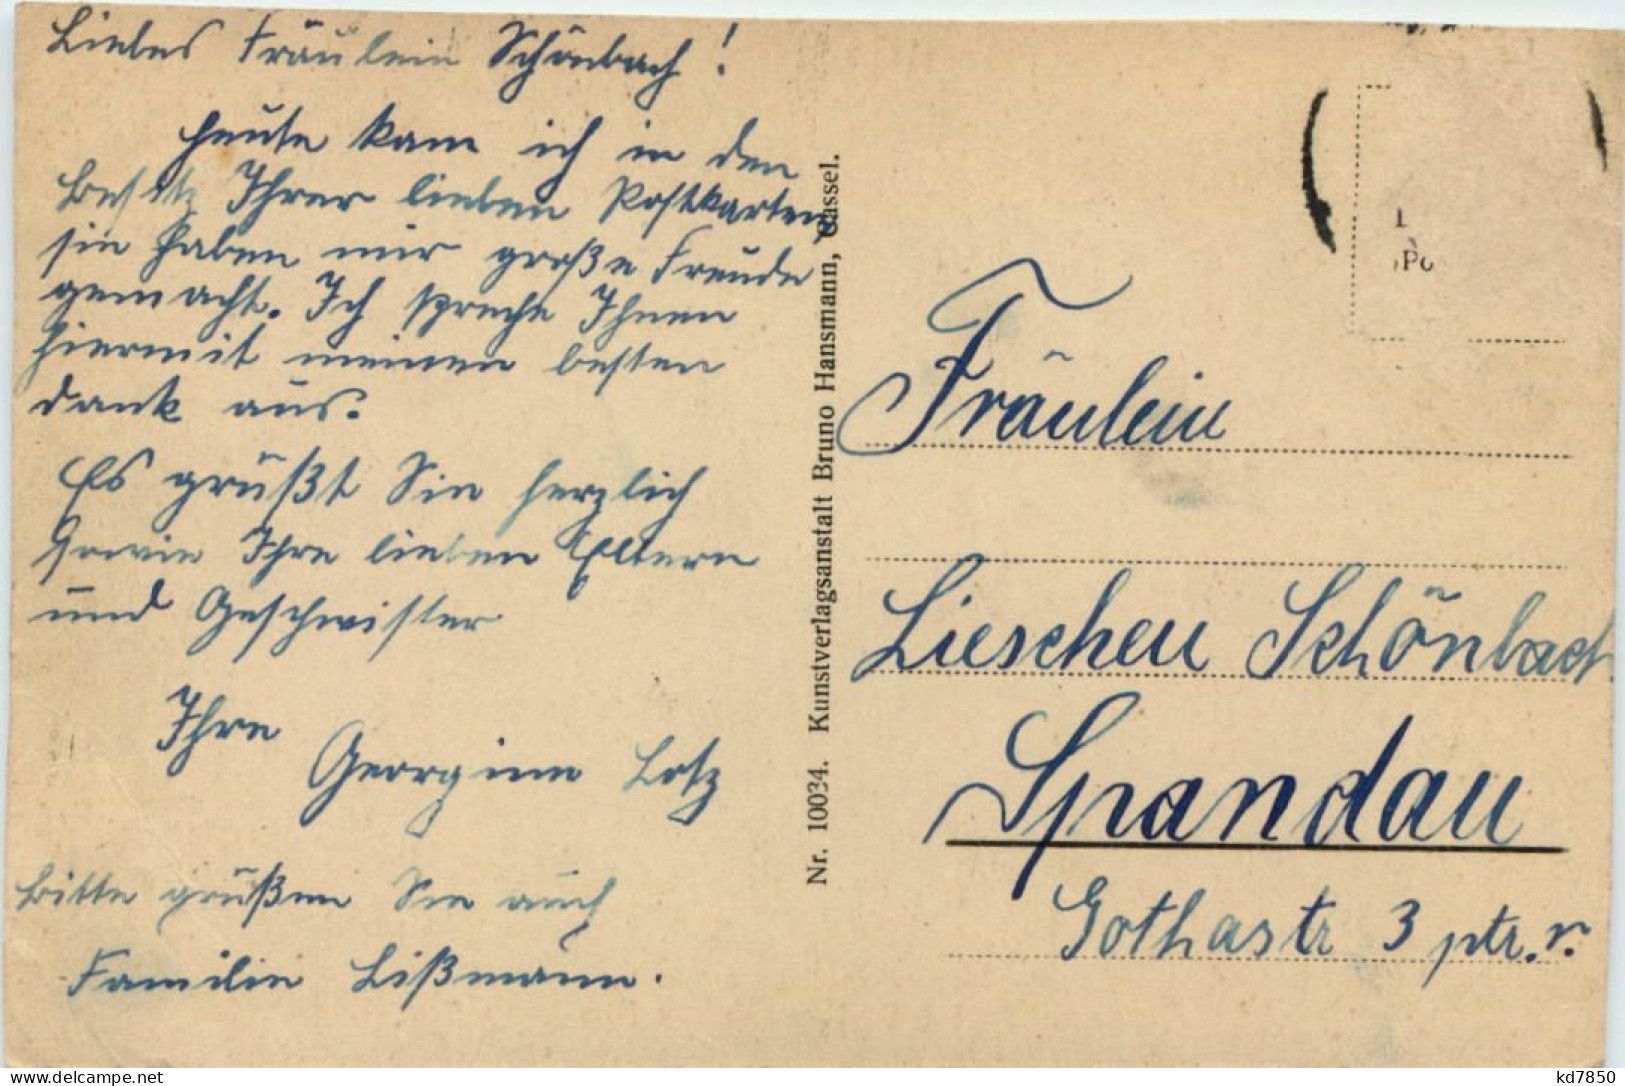 Liebes Fräulein Schönbach!
Heute kam ich in den
Besitz Ihrer lieben Postkarten,
sie haben mir große Freude
gemacht. Ich spreche Ihnen
hiermit meinen besten
Dank aus.
Es grüßt Sie herzlich
sowie Ihre lieben Eltern
und Geschwister
Ihre
Georgine Lotz
Bitte grüßen Sie auch
Familie Lißmann.
Nr. 10034. Kunstverlagsanstalt Bruno Hansmann, Cassel.
Fräulein
Lieschen Schönbach
Spandau
Gothastr 3 ptr. r.
delcampe.net
kd7850